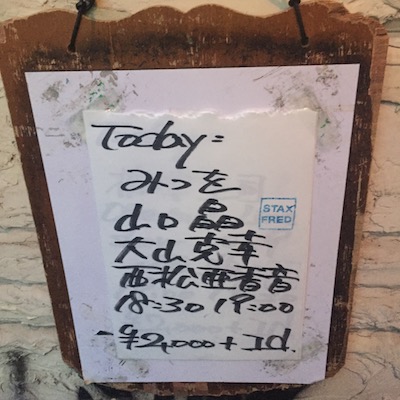 Today:
みつを
山口 晶
STAX
FRED
大山克幸
西松亜香音
18:30 19:00
-¥2,000+1d.